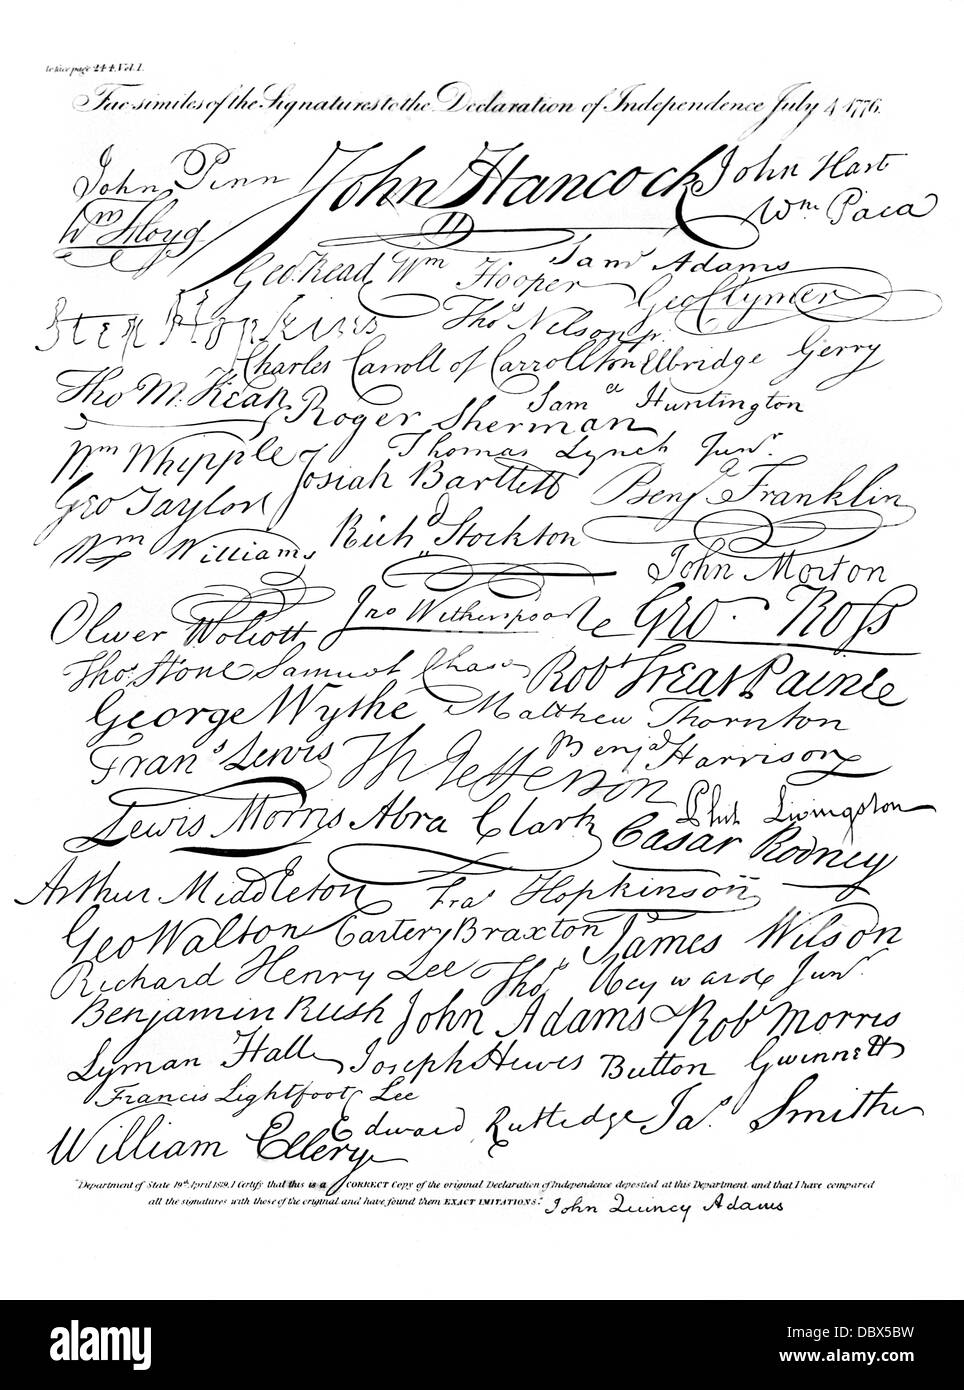 to face page 244, Vol. I.
Fac similes of the Signatures to the Declaration of Independence July 4 1776.
John Penn John Hancock John Hart
Wm Floyd Wm. Paca
Geo. Read Wm Hooper Saml Adams
Step Hopkins Thos Nelson jr. Geo Clymer
Charles Carroll of Carrollton Elbridge Gerry
Tho M. Kean Roger Sherman Saml Huntington
Wm Whipple Thomas Lynch Junr.
Geo Taylor Josiah Bartlett Benja Franklin
Wm Williams Richd Stockton
John Morton
Oliver Wolcott Jno Witherspoon Geo. Ross
Thos. Stone Samuel Chase Robt Treat Paine
George Wythe Matthew Thornton
Frans Lewis Th Jefferson Benja Harrison
Lewis Morris Abra Clark Phil. Livingston
Cæsar Rodney
Arthur Middleton Fras Hopkinson
Geo Walton Carter Braxton James Wilson
Richard Henry Lee Thos Heyward Junr.
Benjamin Rush John Adams Robt Morris
Lyman Hall Joseph Hewes Button Gwinnett
Francis Lightfoot Lee
William Ellery Edward Rutledge Jas. Smith
"Department of State 19th April 1819. I Certify that this is a CORRECT Copy of the original Declaration of Independence deposited at this Department, and that I have compared
all the signatures with those of the original and have found them EXACT IMITATIONS." John Quincy Adams
alamy
a
a
alamy
Image ID: DBX5BW
www.alamy.com